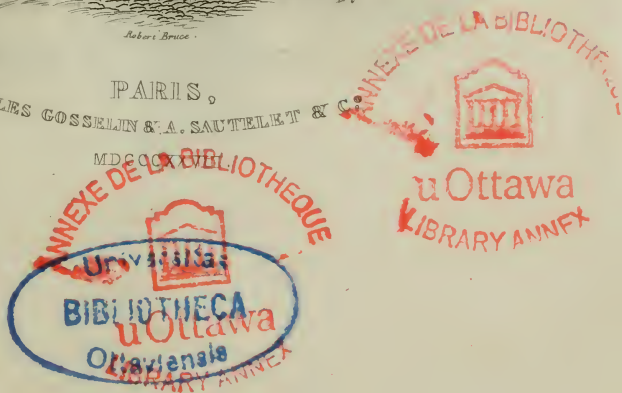 Robert Bruce.
PARIS,
LES GOSSELIN & A. SAUTELET & C.º
ANNEXE DE LA BIBLIOTHÈQUE
uOttawa
LIBRARY ANNEX
ANNEXE DE LA BIBLIOTHEQUE
uOttawa
LIBRARY ANNEX
Universitas
BIBLIOTHECA
Ottaviensis